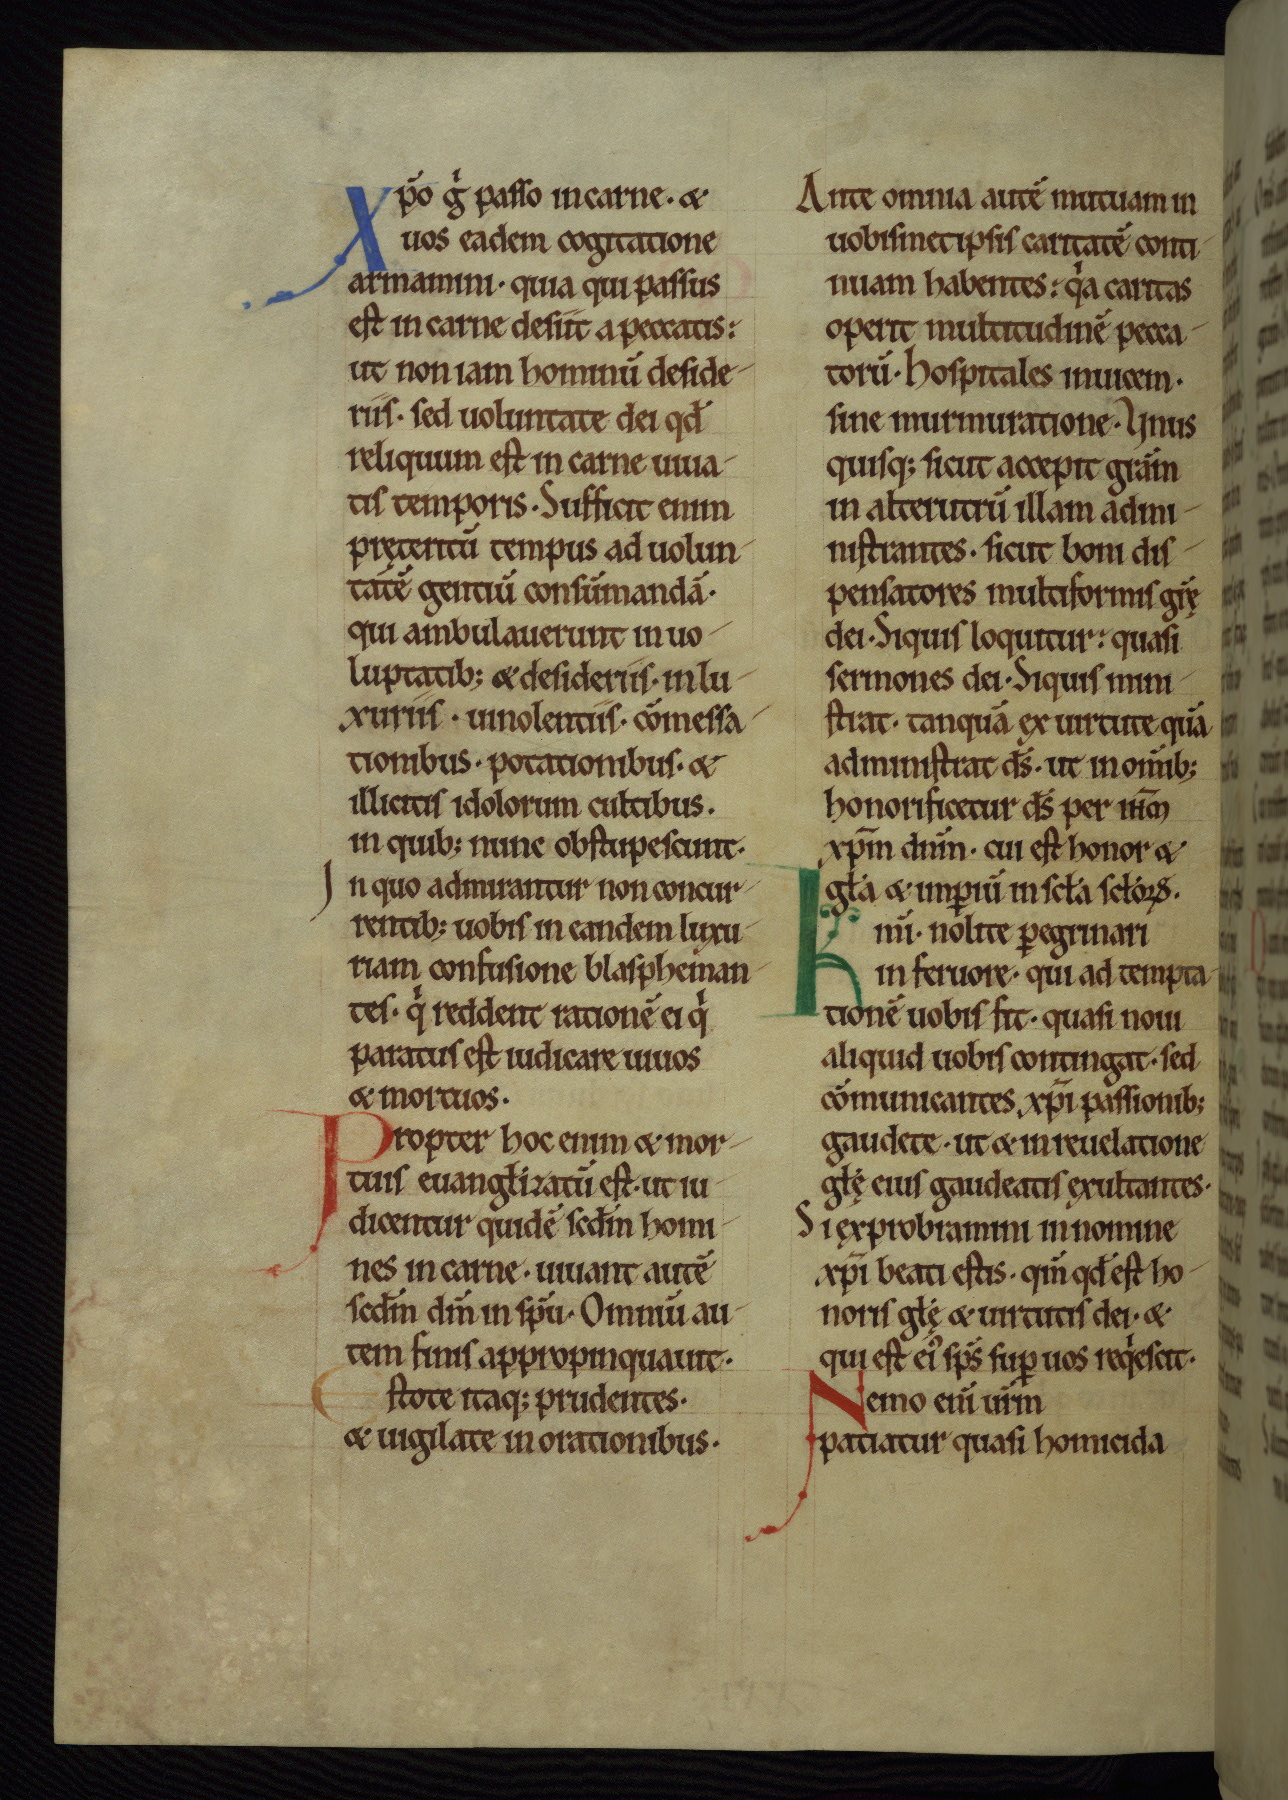 Xp̄o gͥ passo in carne· &
uos eadem cogitatione
armamini· quia qui passus
est in carne desiit a peccatis:
ut non iam hominū deside-
riis· sed uoluntate dei qđ
reliquum est in carne uiua-
tis temporis· Sufficit enim
pręteritū tempus ad uolun-
tatē gentiū consūmandā·
qui ambulauerunt in uo-
luptatib; & desideriis· in lu-
xuriis· uinolentiis· cōmessa-
tionibus· potationibus· &
illicitis idolorum cultibus·
in quib; nunc obstupescunt·
In quo admirantur non concur-
rentib; uobis in eandem luxu-
riam confusione blaspheman-
tes· qͥ reddent rationē ei qͥ
paratus est iudicare uiuos
& mortuos·
Propter hoc enim & mor-
tuis euangłizatū est· ut iu-
dicentur quidē scđm homi-
nes in carne· uiuant autē
scđm dm̄ in sp̄u· Omniū au-
tem finis appropinquauit·
Estote itaq; prudentes·
& uigilate in orationibus·
Ante omnia autē mutuam in
uobismetipsis caritatē conti-
nuam habentes: qͥa caritas
operit multitudinē pecca-
torū· hospitales inuicem·
sine murmuratione· Unus
quisq; sicut accepit grām
in alterutrū illam admi-
nistrantes· sicut boni dis-
pensatores multiformis grę̄
dei· Siquis loquitur: quasi
sermones dei· Siquis mini-
strat· tanquā ex uirtute quā
administrat ds̄· ut in om̄ib;
honorificetur ds̄ per ihm̄
xp̄m dn̄m· cui est honor &
gła & imꝑiū in scła scłoꝝ·
Kmi· nolite ꝑegrinari
in feruore· qui ad tempta-
tionē uobis fit· quasi noui
aliquid uobis contingat· sed
cōmunicantes xp̄i passionib;
gaudete· ut & in reuelatione
głę eius gaudeatis exultantes·
Si exprobramini in nomine
xp̄i beati estis· qm̄ qđ est ho-
noris głę & uirtutis dei· &
qui est eiꝰ sp̄s suꝑ uos reqͥescit·
Nemo eni̅ ur̄m
patiatur quasi homicida